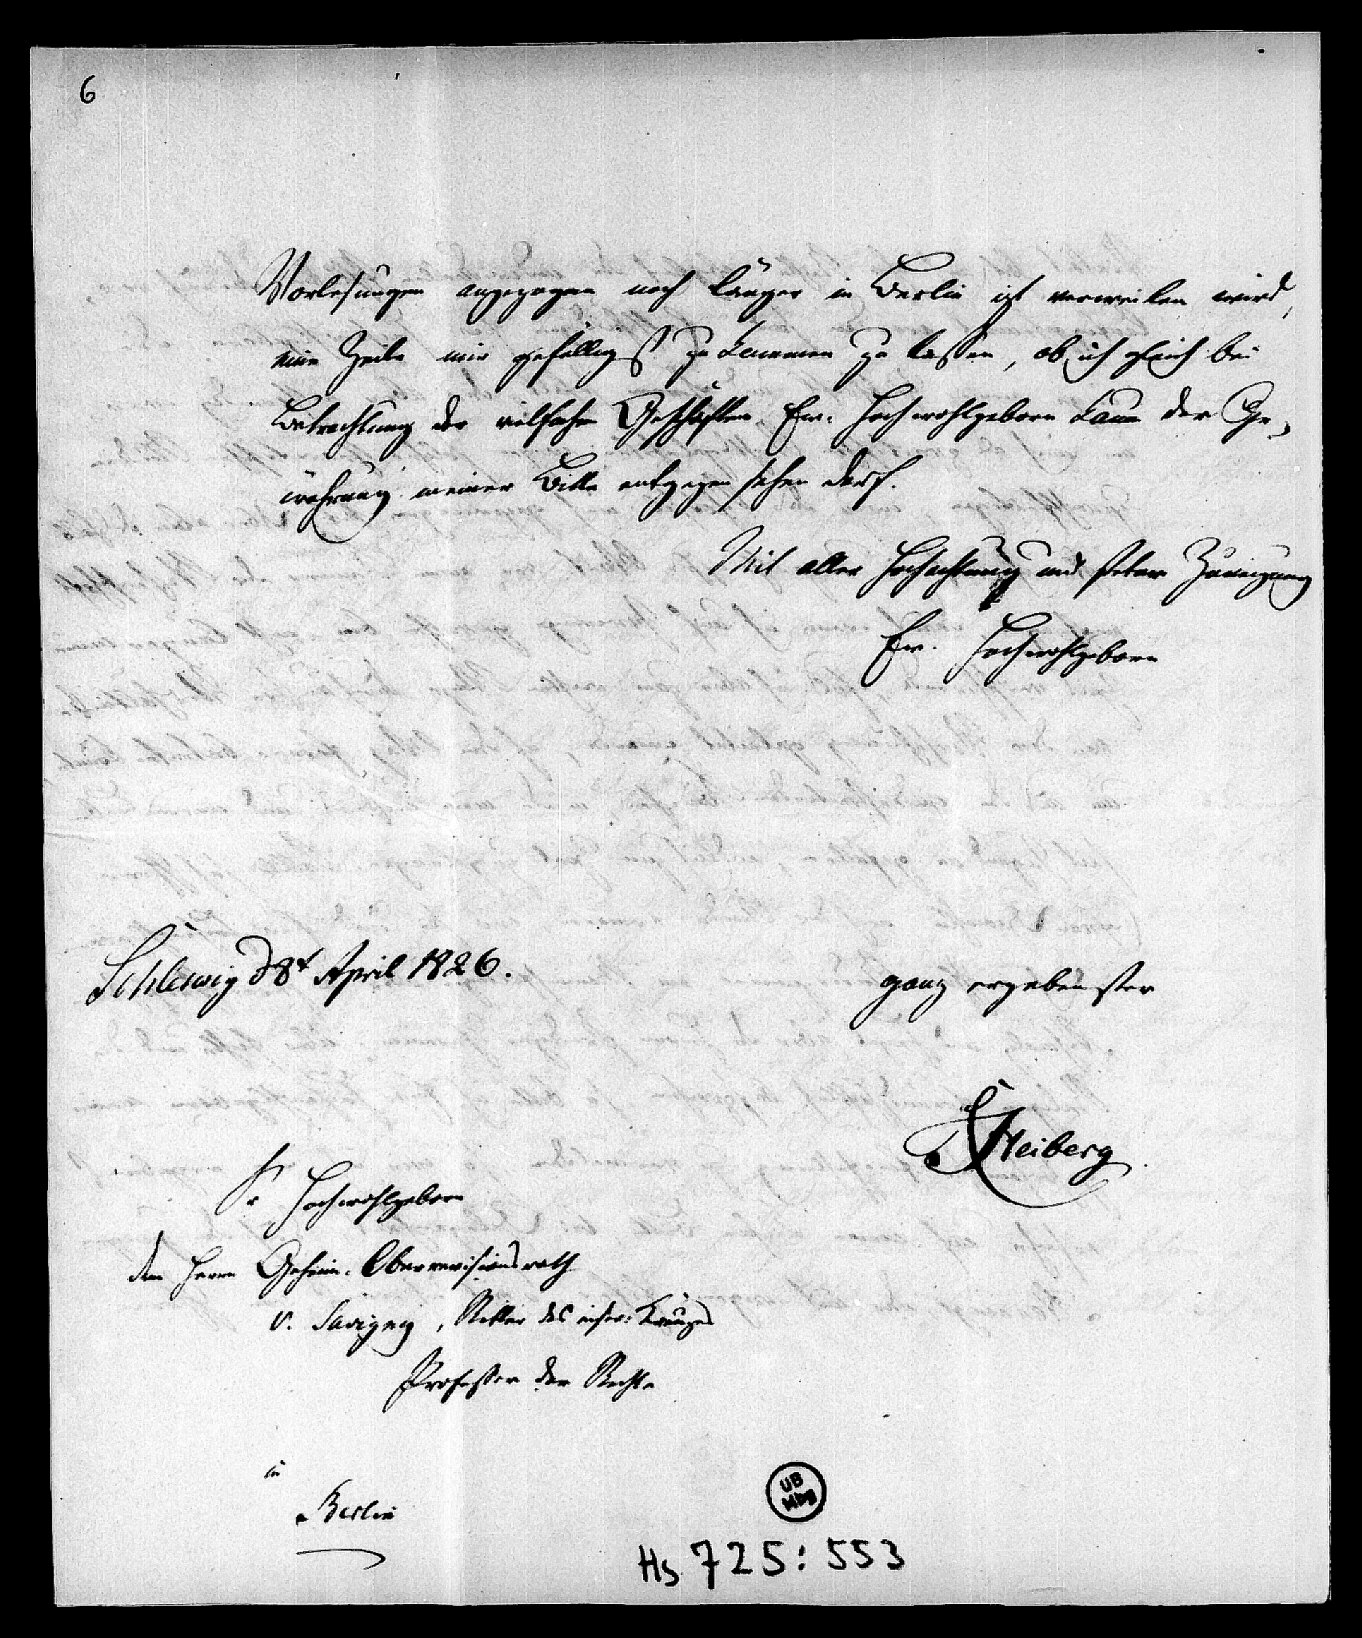 6
Vorlesungen angezogen noch länger in Berlin izt verweilen wird,
eine Zeile mir gefälligst zukommen zu lassen, ob ich gleich bei
Betrachtung der vielfachen Geschäfte Ew. Hochwohlgeboren kaum der Ge-
währung meiner Bitte entgegen sehen darf.
Mit aller Hochachtung und steter Zuneigung
Ew. Hochwohlgeboren
Schleswig d 8t April 1826.
ganz ergebenster
Heiberg
Sr Hochwohlgeboren
dem Herrn Geheim. Oberrevisionsrath
v. Savigny, Ritter des Kreuzes
Professor der Rechte
in
Berlin
UB Mbg
Hs 725: 553